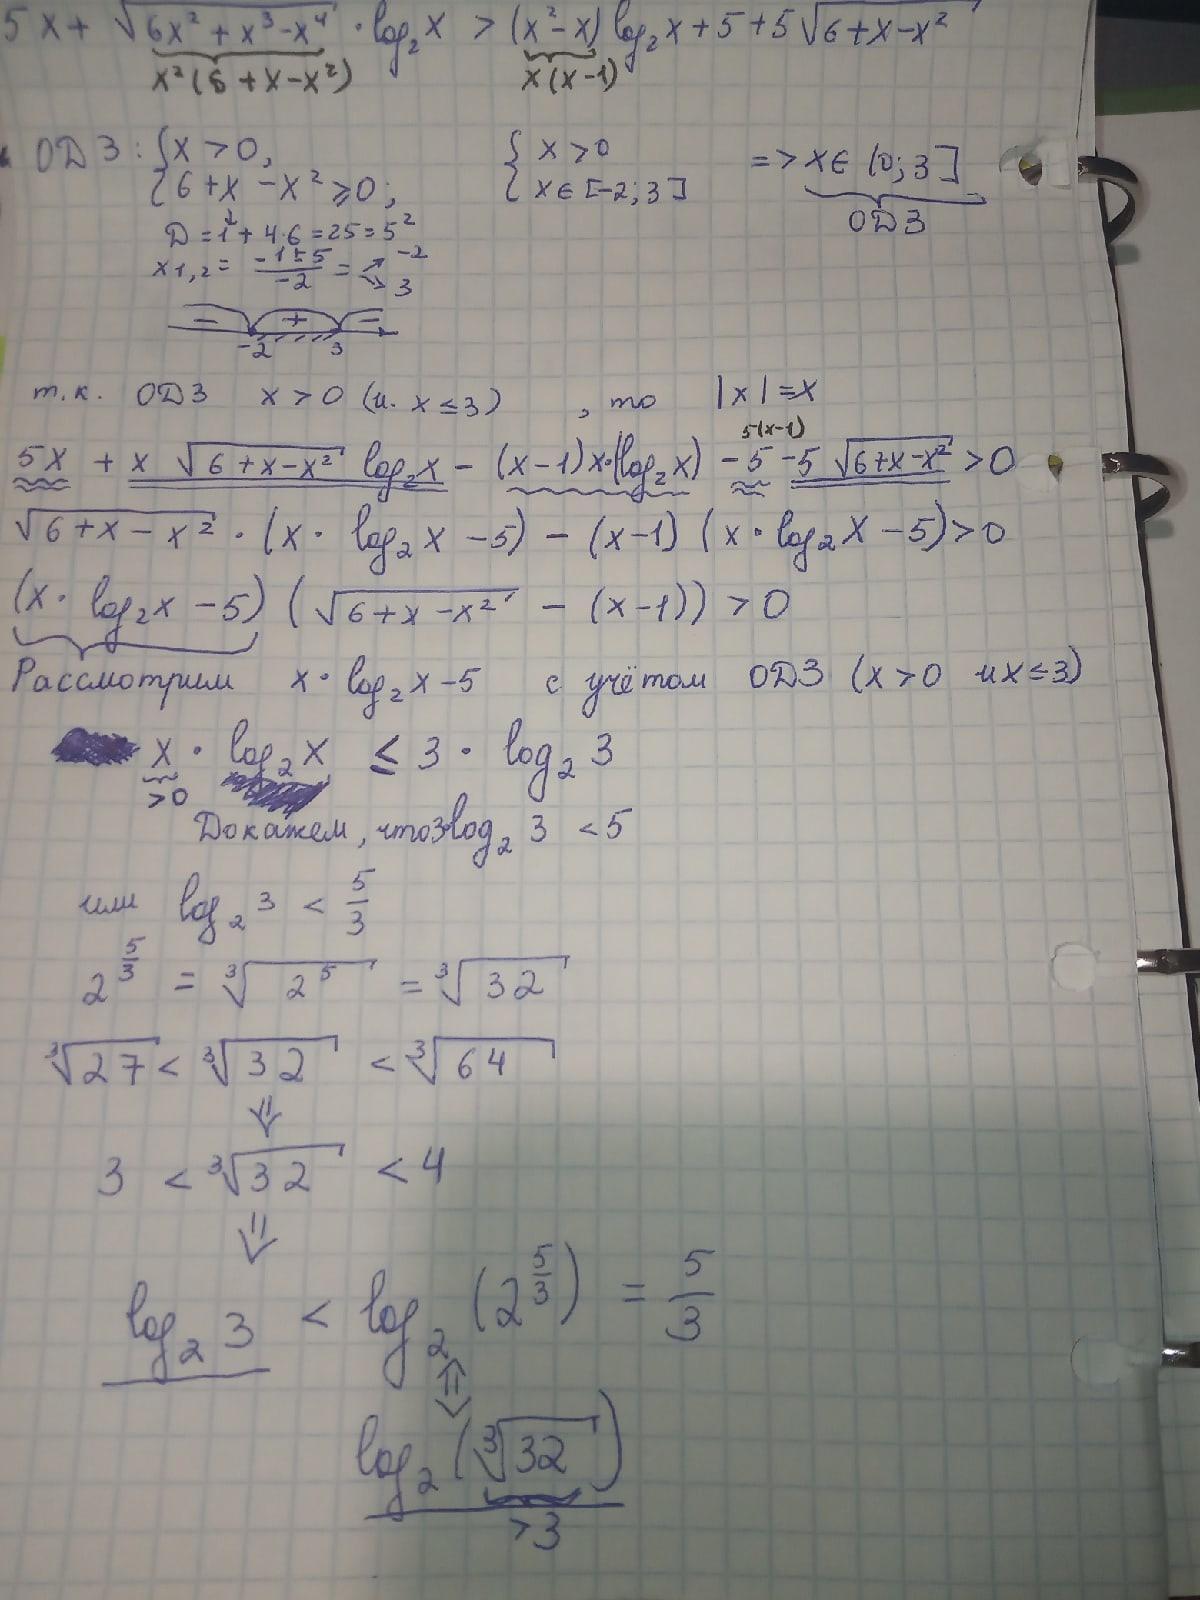 5x + √(6x² + x³ - x⁴) · log₂x > (x² - x) log₂x + 5 + 5√(6 + x - x²)
x²(6 + x - x²) x(x-1)
ОДЗ: { x > 0, { x > 0 => x ∈ (0; 3]
{ 6 + x - x² ≥ 0; { x ∈ [-2; 3] ОДЗ
D = 1 + 4·6 = 25 = 5²
x1,2 = (-1±5)/(-2) = -2
3
- + -
-2 3
т.к. ОДЗ x > 0 (и x ≤ 3), то |x| = x
5(x-1)
5x + x √(6+x-x²) log₂x - (x-1)x·(log₂x) - 5 - 5 √(6+x-x²) > 0
√(6+x-x²) · (x · log₂x - 5) - (x-1) (x · log₂x - 5) > 0
(x · log₂x - 5) (√(6+x-x²) - (x-1)) > 0
Рассмотрим x · log₂x - 5 с учётом ОДЗ (x > 0 и x ≤ 3)
x · log₂x ≤ 3 · log₂3
>0
Докажем, что 3log₂3 < 5
или log₂3 < 5/3
2^(5/3) = ³√(2⁵) = ³√32
³√27 < ³√32 < ³√64
⇓
3 < ³√32 < 4
⇓
log₂3 < log₂(2^(5/3)) = 5/3
⇕
log₂(³√32)
>3